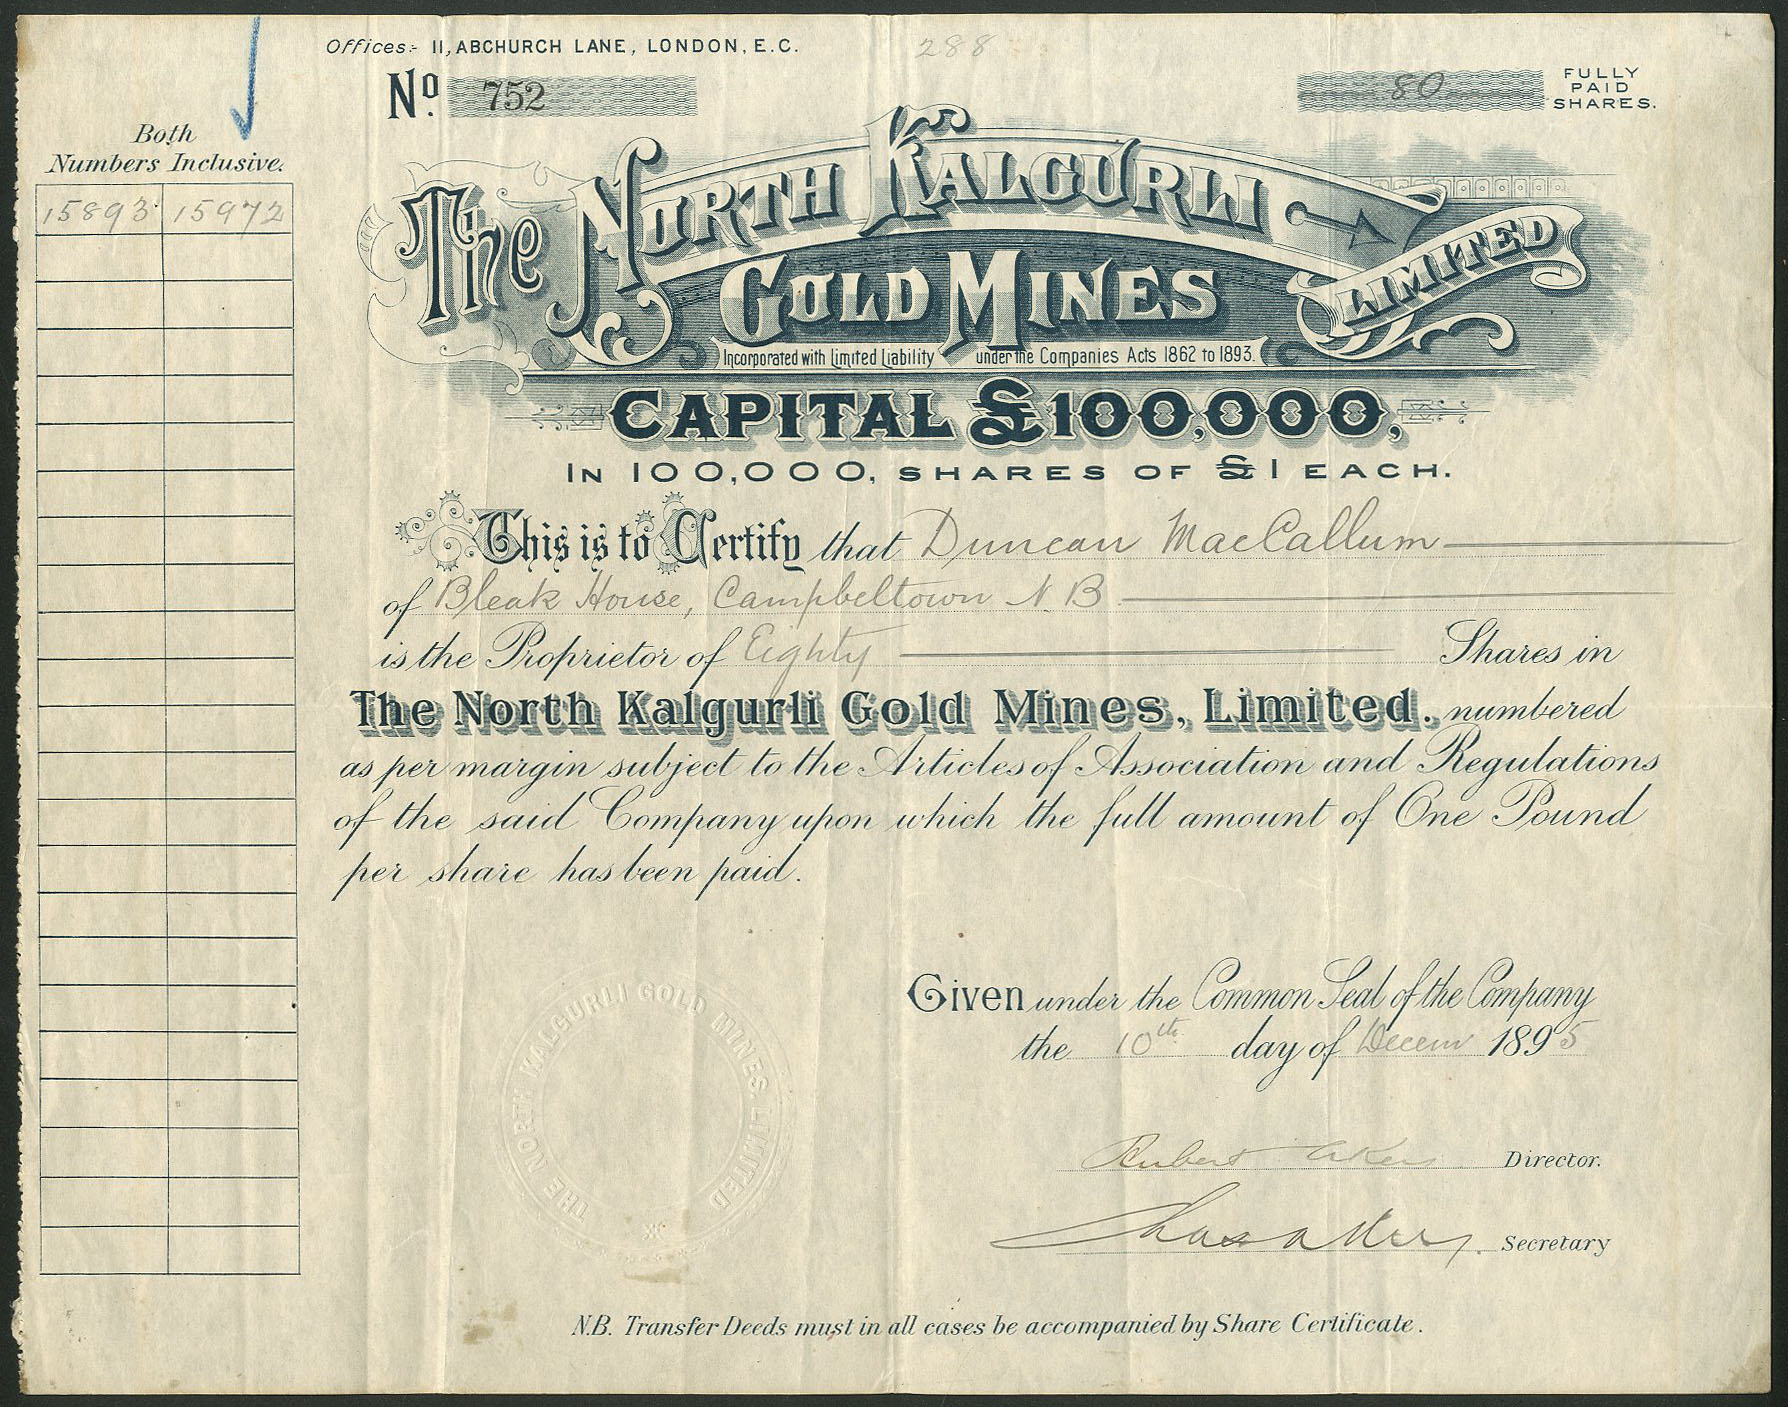 Offices:- 11, ABCHURCH LANE, LONDON, E.C.
288
No. 752
80 FULLY PAID SHARES.
Both
Numbers Inclusive.
15893 15972
The North Kalgurli
Gold Mines
Limited
Incorporated with Limited Liability under the Companies Acts 1862 to 1893.
CAPITAL £100,000,
IN 100,000, SHARES OF £1 EACH.
This is to Certify that Duncan MacCallum
of Bleak House, Campbeltown N.B.
is the Proprietor of Eighty Shares in
The North Kalgurli Gold Mines, Limited. numbered
as per margin subject to the Articles of Association and Regulations
of the said Company upon which the full amount of One Pound
per share has been paid.
THE NORTH KALGURLI GOLD MINES. LIMITED
Given under the Common Seal of the Company
the 10th day of Decem 1895
Director.
Secretary
N.B. Transfer Deeds must in all cases be accompanied by Share Certificate.